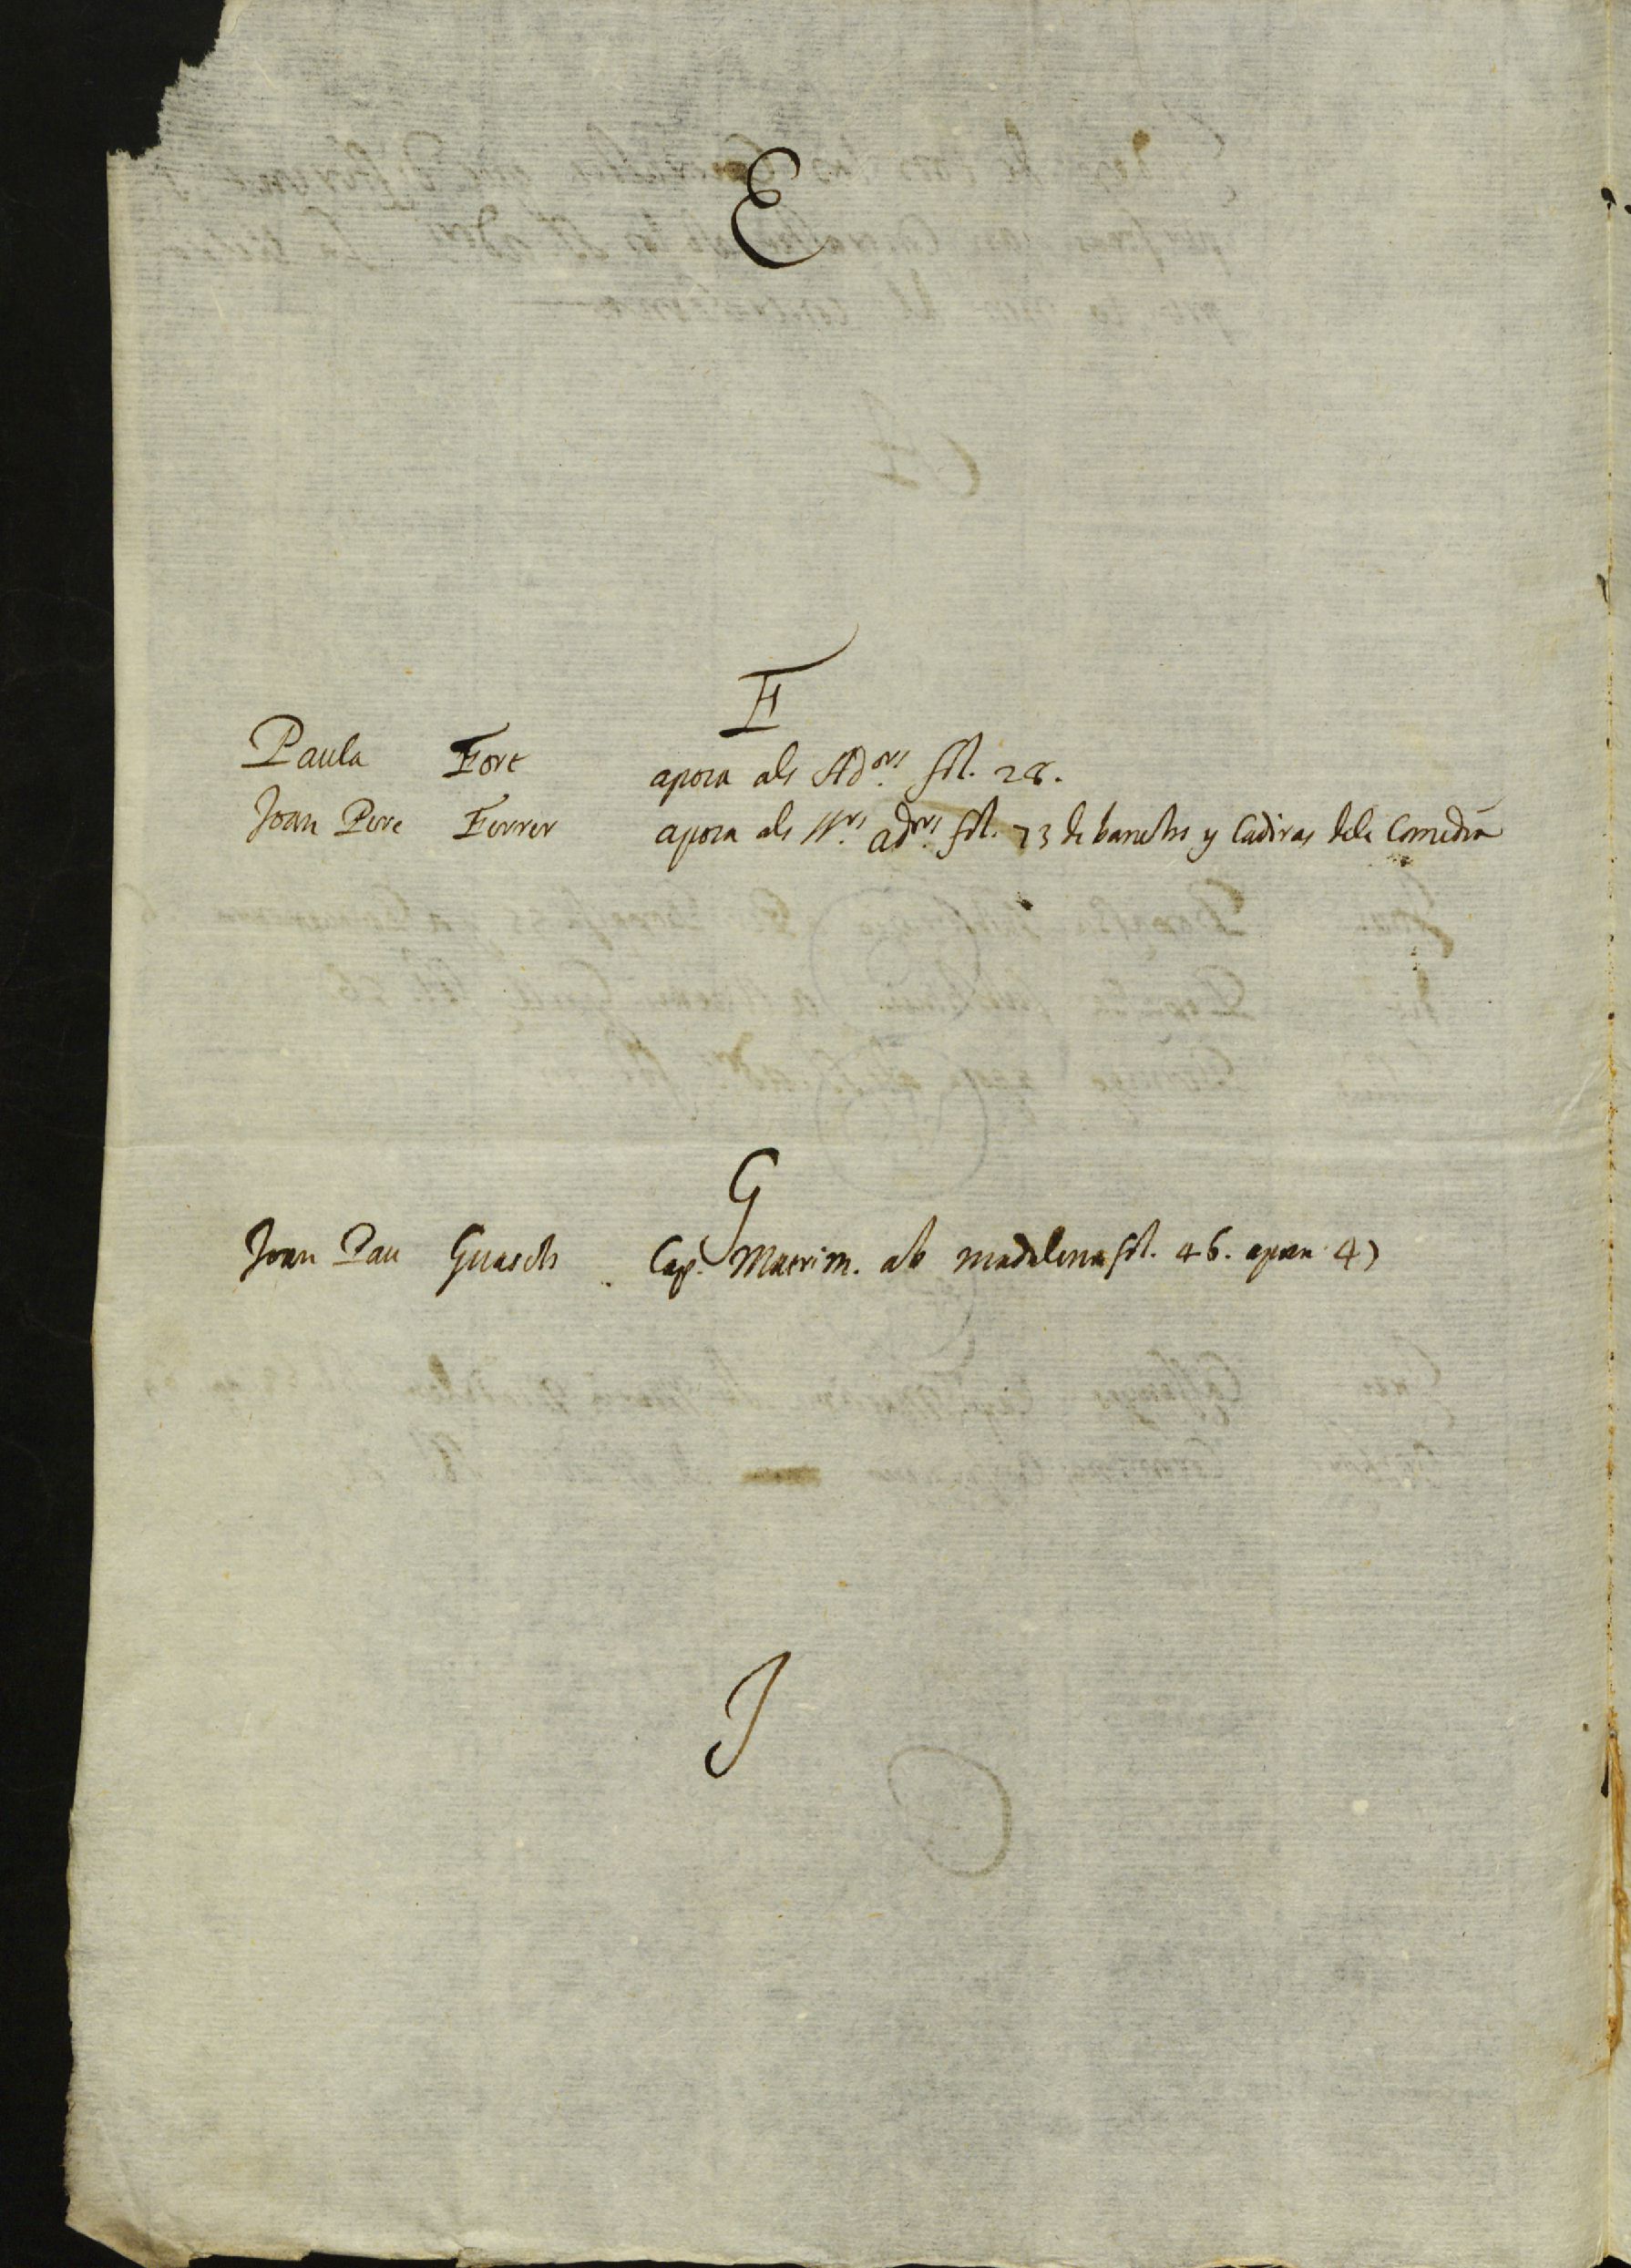 E
F
Paula Fort apoca als Ad.ors fol. 28.
Joan Pere Ferrer apoca als ss.rs ad.rs fol. 73 de banchs y Cadiras dela Comedia
G
Joan Pau Guasch Cap. Matrim. ab madalena fol. 46. apoca 47
J